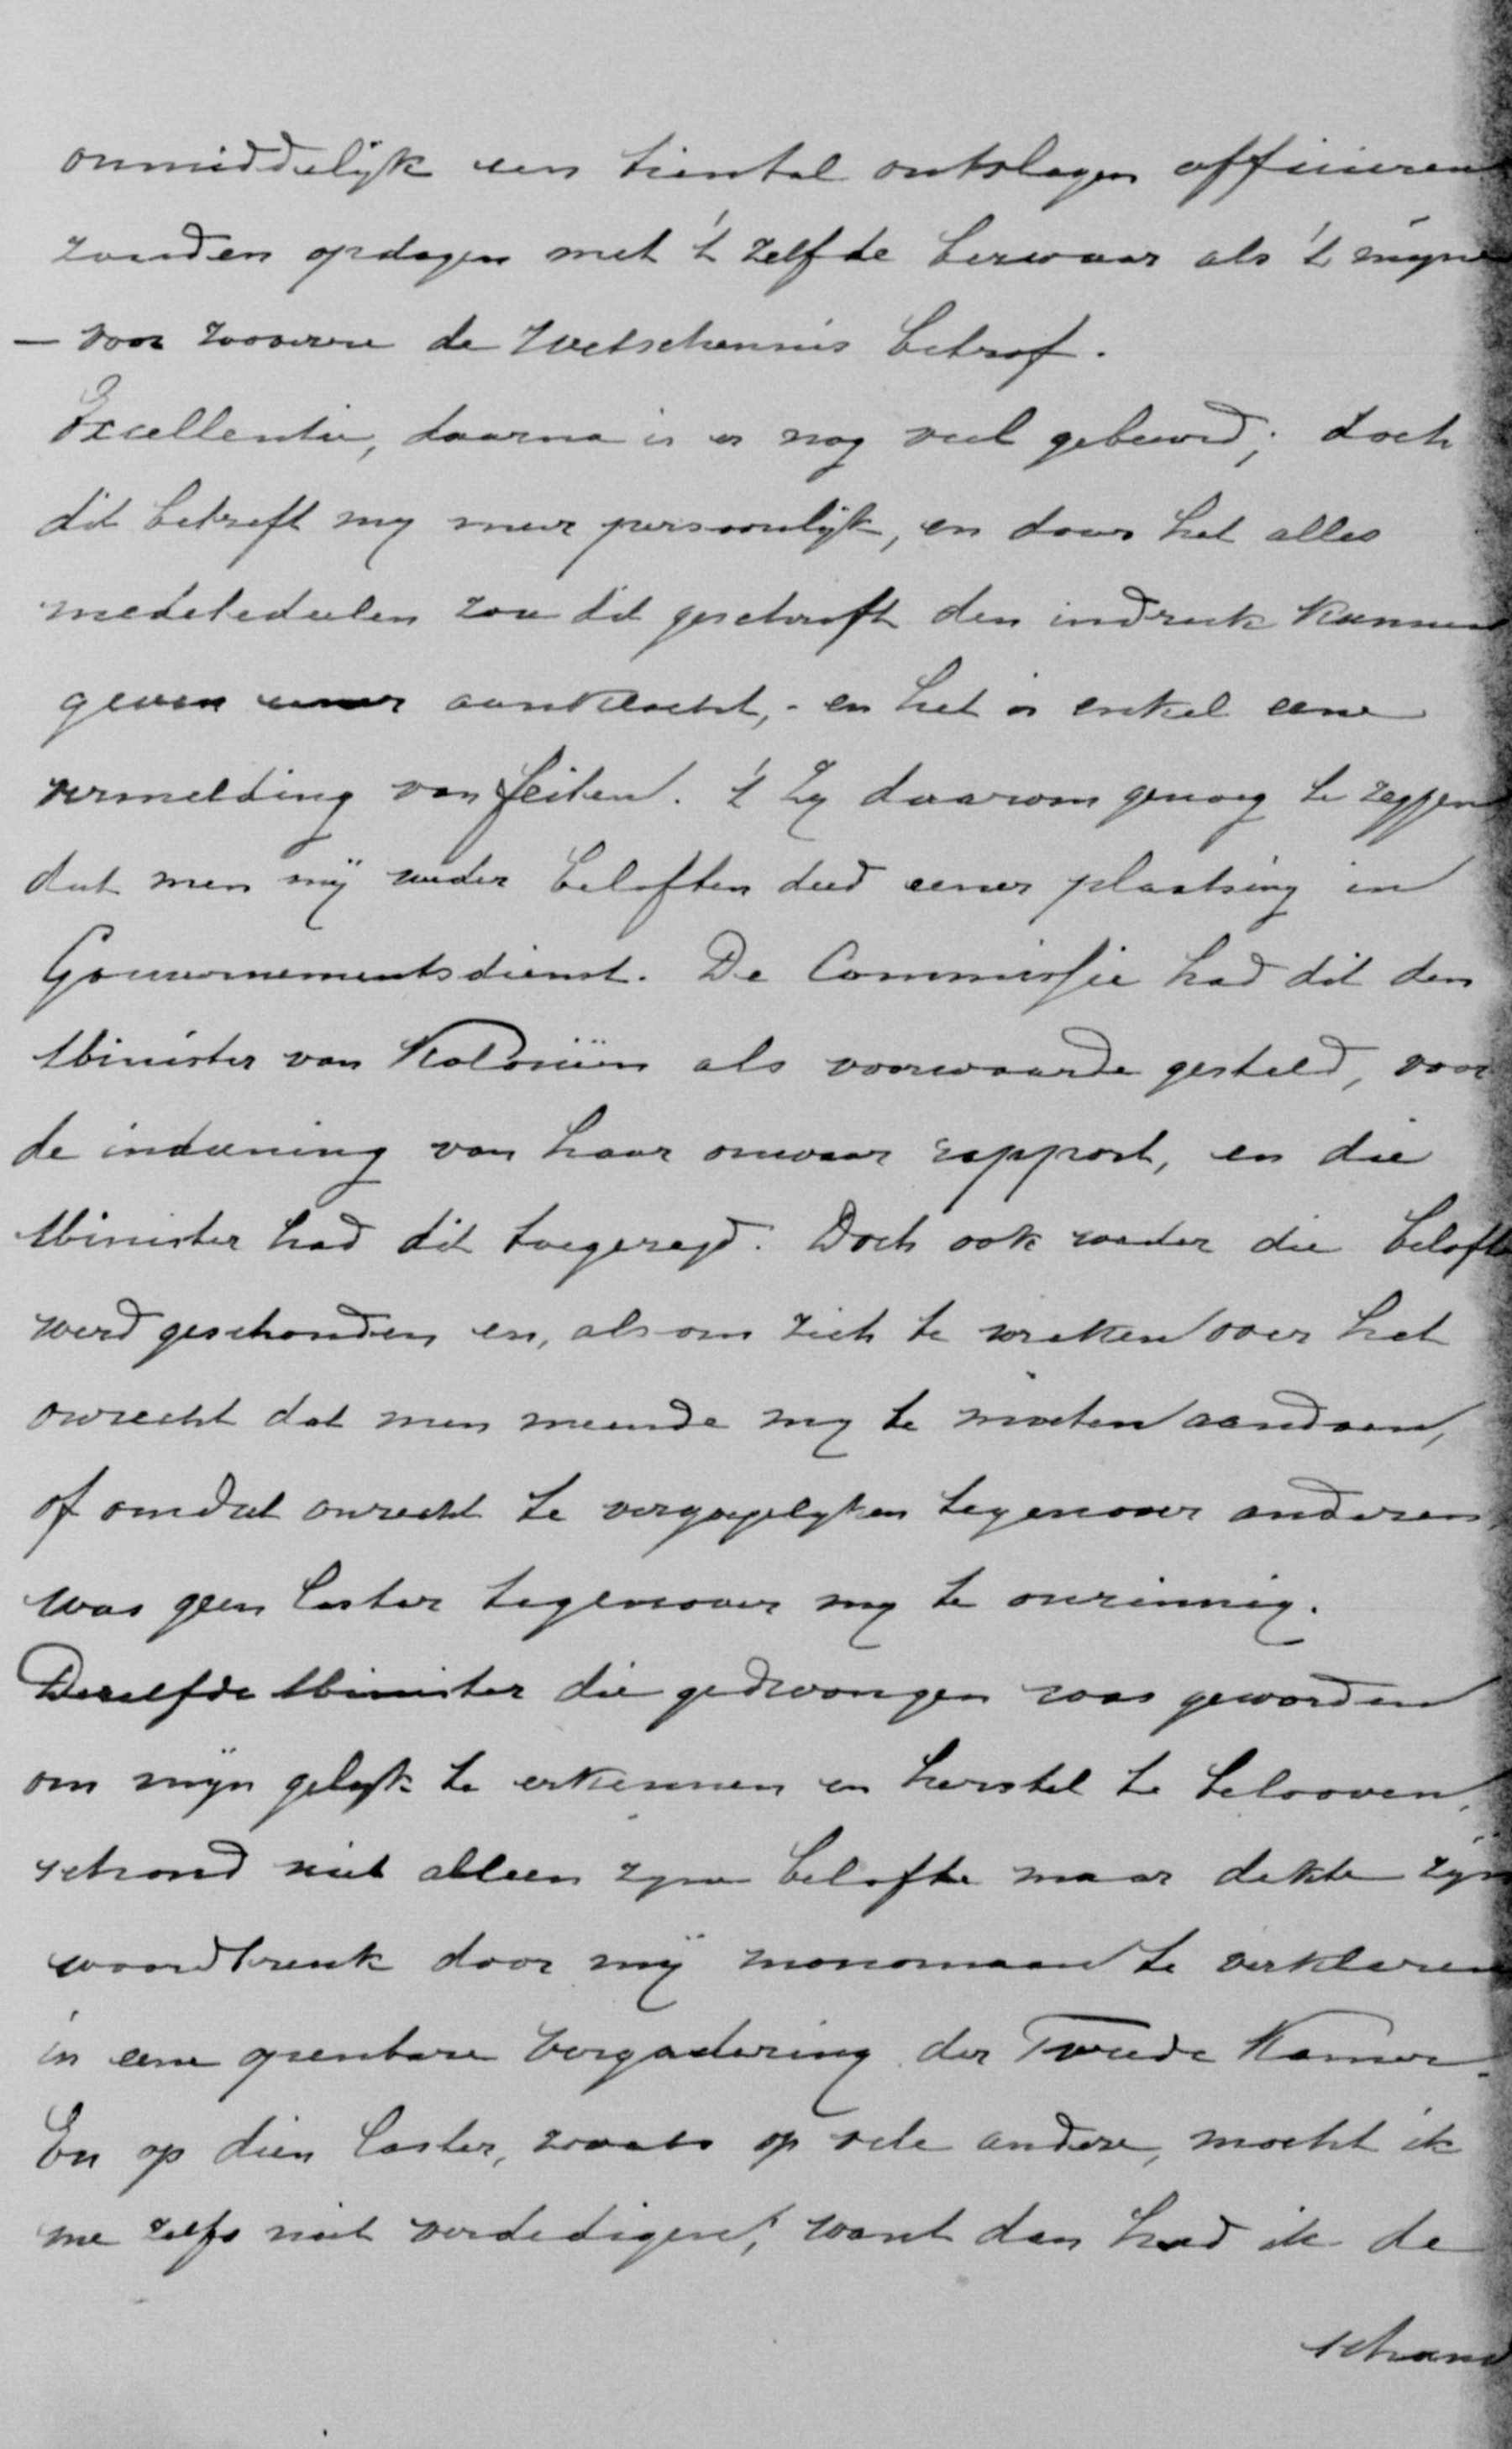 onmiddelijk een tiental ontslagen officieren
zouden opdagen met 't zelfde bezwaar als 't mijne
— voor zooverre de Wetschennis betrof.
Excellentie, daarna is er nog veel gebeurd; doch
dit betreft my meer persoonlijk, en door het alles
medetedeelen zou dit geschrift den indruk kunnen
geven eener aanklacht, - en het is enkel eene
vermelding van feiten. 't Zy daarom genoeg te zeggen
dat men mij weder beloften deed eener plaatsing in
Gouvernementsdienst. De Commissie had dit den
Minister van Koloniën als voorwaarde gesteld, voor
de indiening van haar onwaar rapport, en die
Minister had dit toegezegd. Doch ook weder die belofte
werd geschonden en, als om zich te wreken over het
onrecht dat men meende my te moeten aandoen,
of om dat onrecht te vergoelyken tegenover anderen,
was geen laster tegenover my te onzinnig.
Dezelfde Minister die gedwongen was geworden
om mijn gelyk te erkennen en herstel te belooven,
schond niet alleen zyne belofte maar dekte zijn
woordbreuk door mij monomaan te verklaren
in eene openbare Vergadering der Tweede Kamer.
En op dien laster, zooals op vele andere, mocht ik
me zelfs niet verdedigen, want dan had ik de
schand